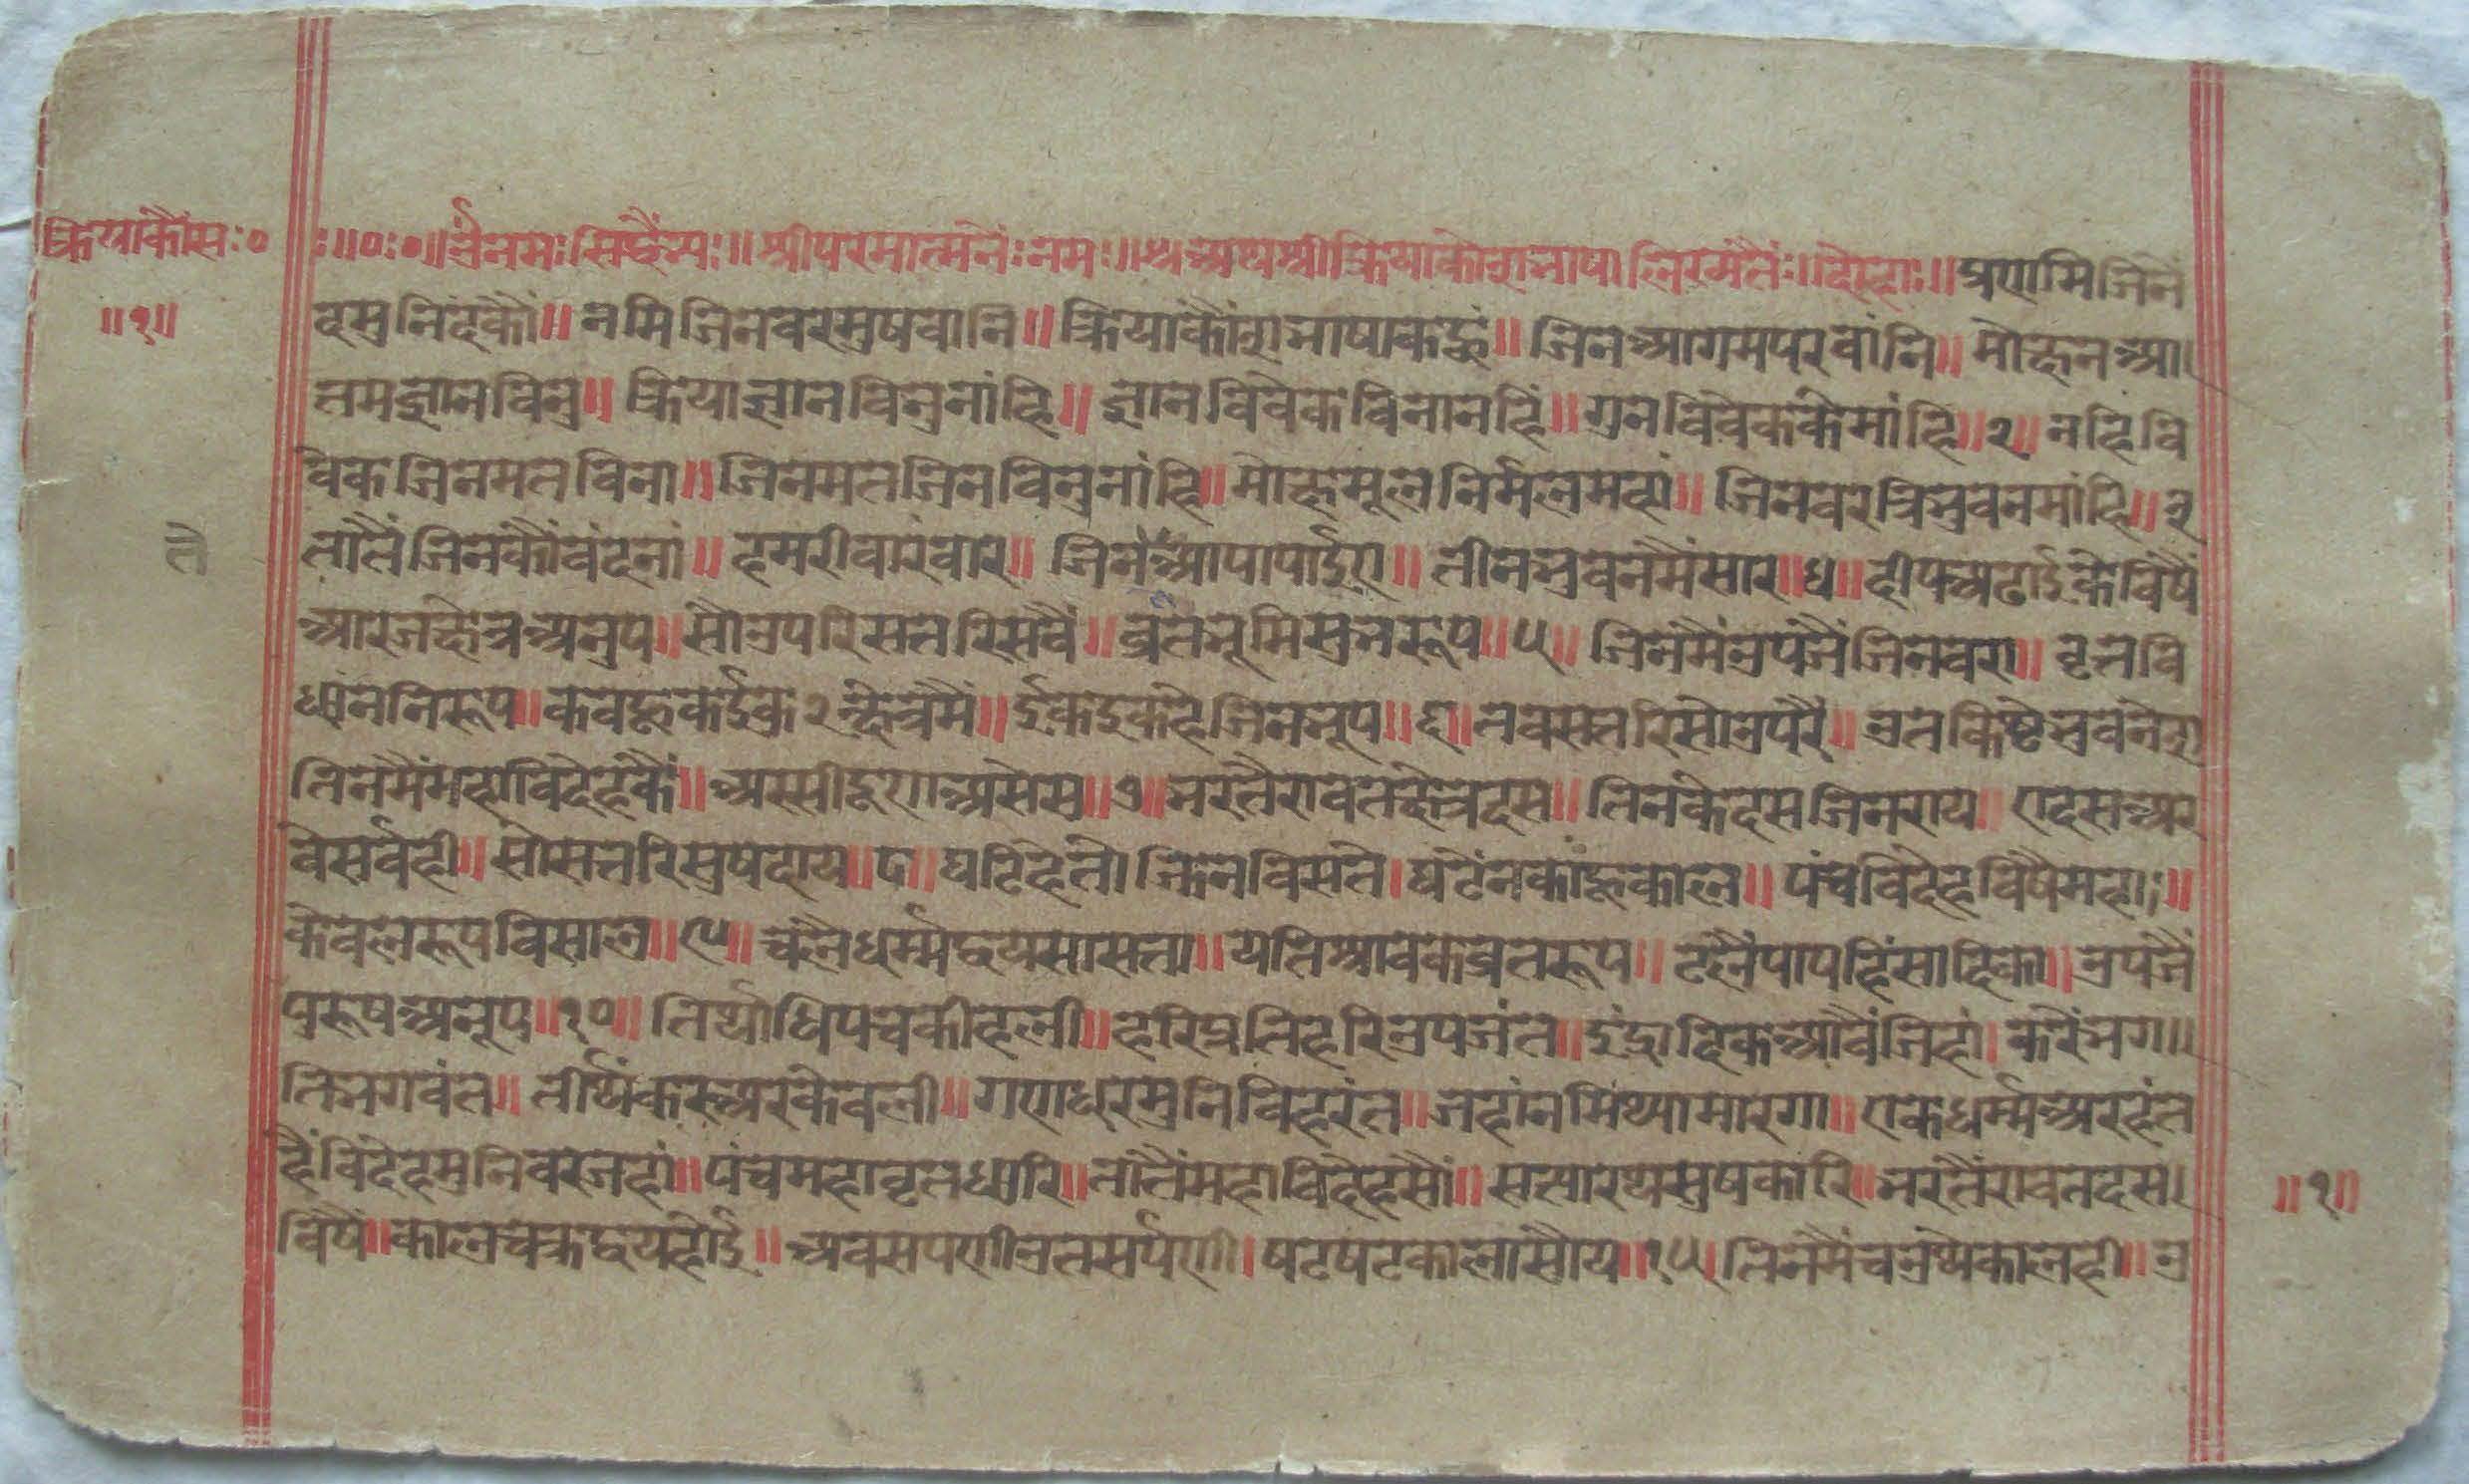 क्रियाकौस:० :॥०:०॥ॐनमः सिद्धेंमः॥ श्रीपरमात्मनेंःनमः॥ अथश्रीक्रियाकोशभाषा लिख्यंतेंः॥दोहाः॥ प्रणमि जिनं
॥१॥
दमुनिंदकौं॥ नमि जिनवरमुषवानि॥ क्रियाकौंशभाषाकहूं॥ जिनआगमपरवांनि॥ मोक्षनआ।
तमज्ञानविनु॥ क्रियाज्ञानविनुनांहि॥ ज्ञानविवेकविनानहिं॥ गुनविवेककेमांहि॥२॥ नहिवि
वेकजिनमतविना॥ जिनमतजिनविनुनांहि॥ मोक्षमूलनिर्मलमहां॥ जिनवरत्रिभुवनमांहि॥३
तातैंजिनकौंवंदनां॥ हमरीवारंवार॥ जिनतैंआपापाईए॥ तीनभुवनमैंसार॥४॥ दीपअढाईकेविषैं
तै
आरजक्षेत्रअनुप॥ सौउपरिसतरिसवै॥ व्रतभूमिसुभरूप॥५॥ जिनमैंउपजैंजिनवरा॥ वृतवि
धांननिरूप॥ कवहूकईक२क्षेत्रमैं॥ ईकइकहैजिनभूप॥६॥ तवसतरिसोउपरै॥ उतकिष्टेभुवनेश
तिनमैंमहाविदेहकैं॥ अस्सीदूणाअसेस॥७॥ भरतैरावतक्षेत्रदस॥ तिनकेदसजिनराय॥ एदसअर
वेसर्वही॥ सोसत्तरिसुषदाय॥८॥ घटिहैतो जिनविसतै। घटैंनकांहूकाल॥ पंचविदेहविषैंमहा॥
केवलरूपविसाल॥९॥ चलैधर्म्मद्वयसासता॥ यतिश्रावकव्रतरूप॥ टलैंपापहिंसादिका॥ उपजैं
पुरूषअनूप॥१०॥ तिर्थाधिपचक्रीहली॥ हरिप्रतिहरिउपजंत॥ इंद्रादिकआवैंजिहां। करैंभग॥
तिभगवंत॥ तीर्थंकरूअरकेवली॥ गणधरमुनिविहरंत॥ जहांनमिथ्यामारगा॥ एकधर्म्मअरहंत
हैविदेहमुनिवरजहां॥ पंचमहावृतधारि॥ तातैंमहाविदेहसौं॥ सत्यारथसुषकारि॥ भरतैंरावतदस।
॥१॥
विषैं॥ कालचक्रद्वयहोई॥ अवसपणीउतसर्पणी। षटषटकालासोय॥१५। तिनमैंचउथेकालही॥ उ